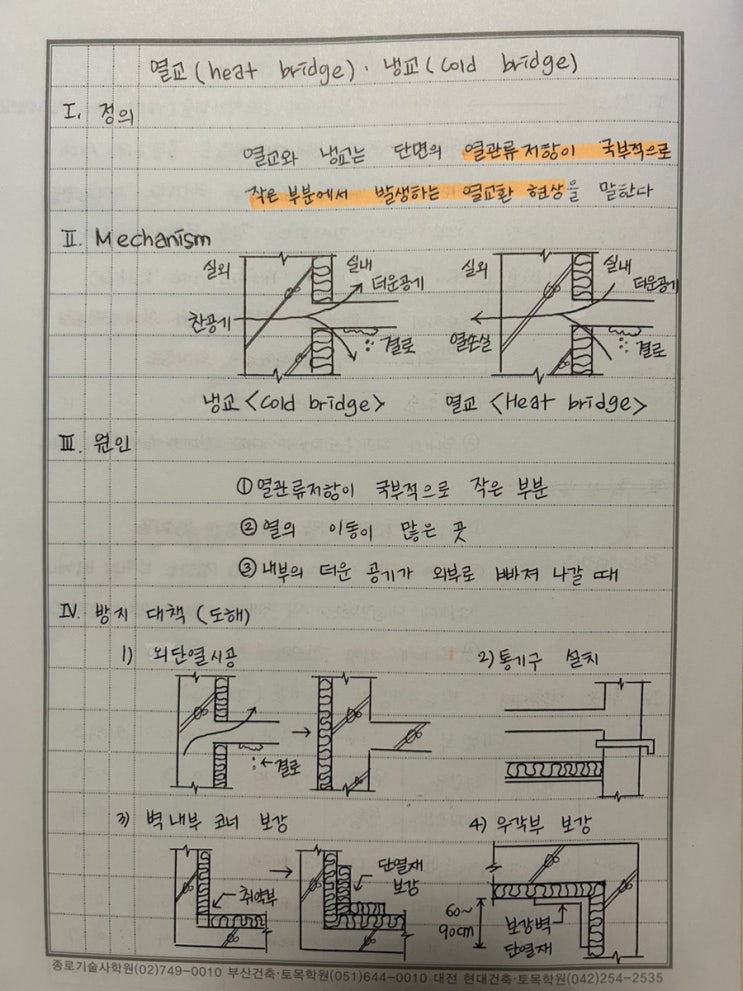 열교(heat bridge)·냉교(cold bridge)
I. 정의
열교와 냉교는 단면의 열관류저항이 국부적으로
작은 부분에서 발생하는 열교환 현상을 말한다
II. Mechanism
실외 실내 실외 실내
더운공기 더운공기
찬공기 결로 열손실 결로
냉교 <Cold bridge> 열교 <Heat bridge>
III. 원인
① 열관류저항이 국부적으로 작은 부분
② 열의 이동이 많은 곳
③ 내부의 더운 공기가 외부로 빠져 나갈 때
IV. 방지 대책 (도해)
1) 외단열시공 2) 통기구 설치
→
←결로
3) 벽 내부 코너 보강 4) 우각부 보강
→ 단열재
취약부 보강
60~ 보강벽
90cm 단열재
종로기술사학원(02)749-0010 부산건축·토목학원(051)644-0010 대전 현대건축·토목학원(042)254-2535